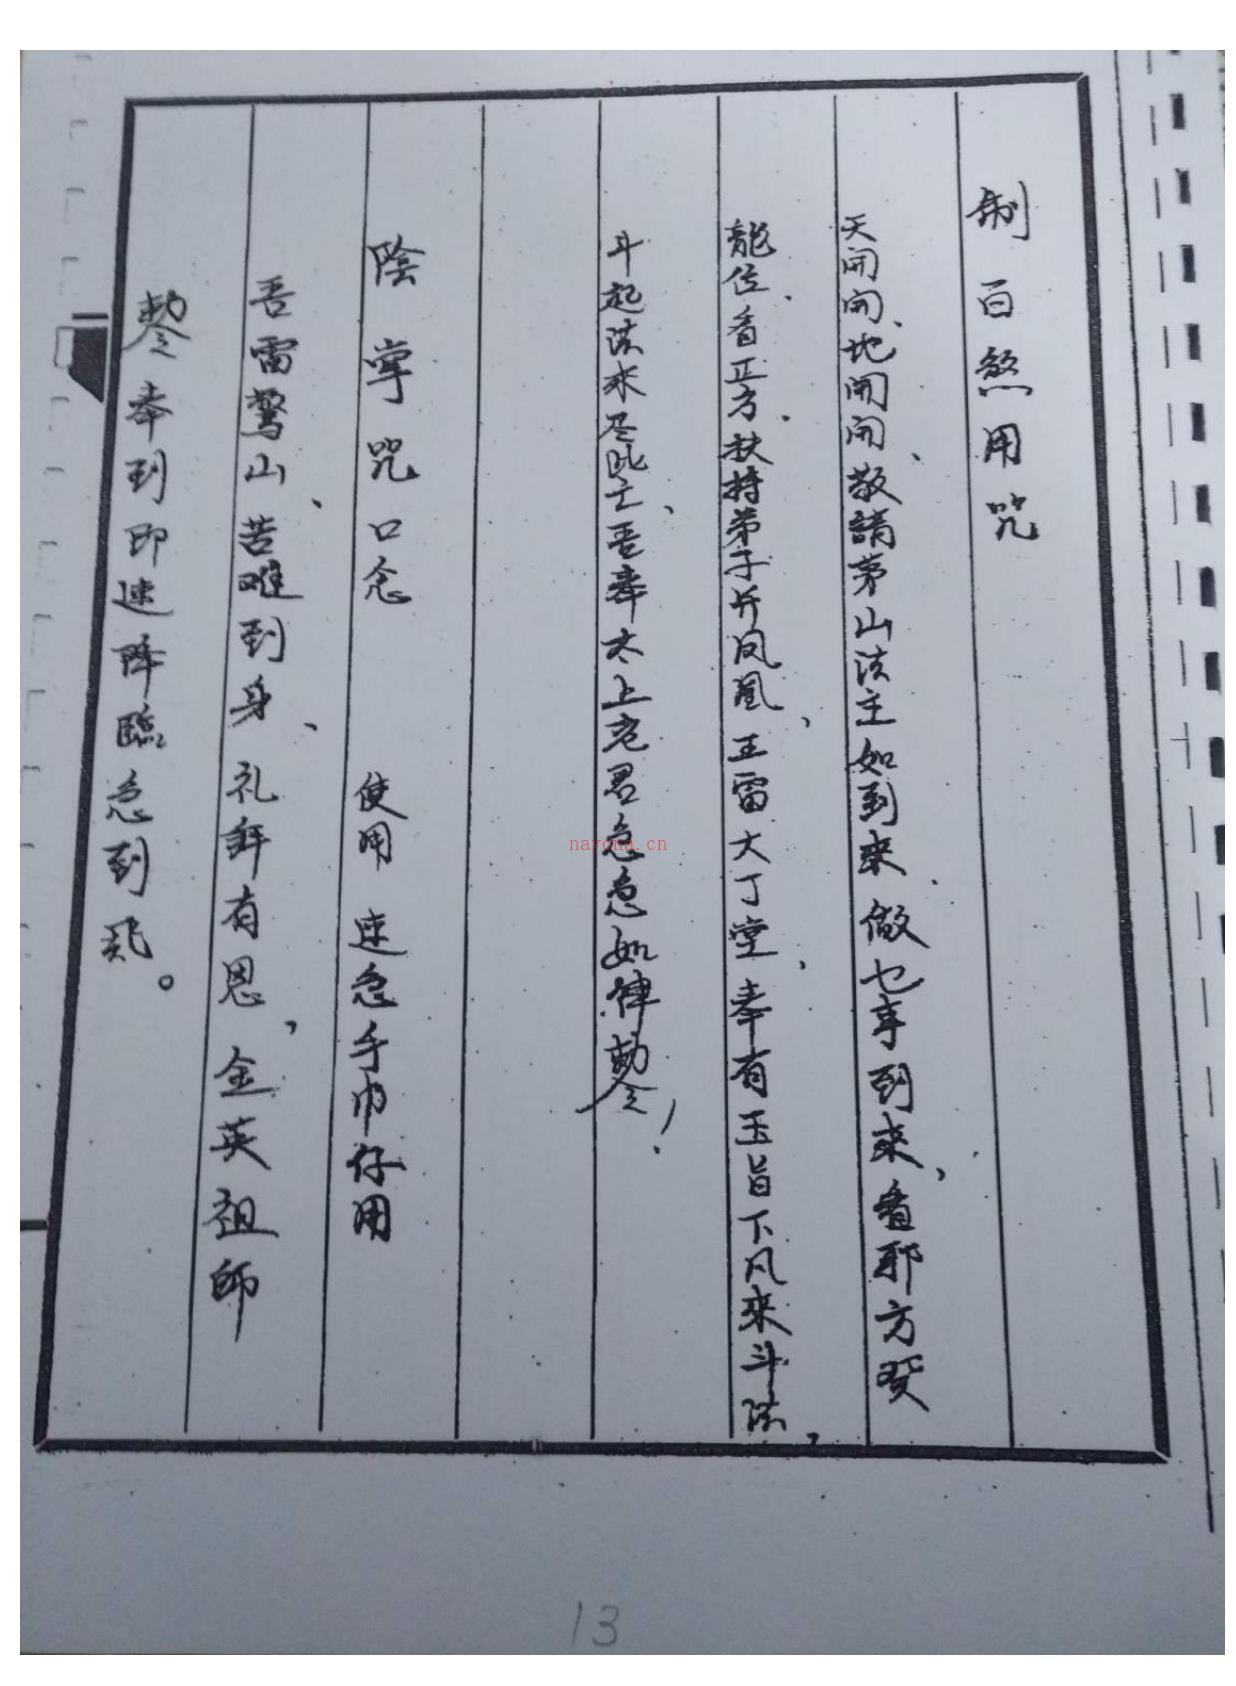 制百煞用咒
天開開、地開開、敬請茅山法主如到來、做乜事到來、看那方癸
龍位、看正方、扶持弟子斤凤凰、正雷大丁堂、奉有玉旨下凡來斗法、
斗起法來尽此亡、吾奉太上老君急急如律勅令!
陰掌咒口念 使用 速急手巾仔用
吾雷鸶山、苦难到身、礼拜有恩、金英祖師
勅令奉到即速降臨急到
nayona.cn
13